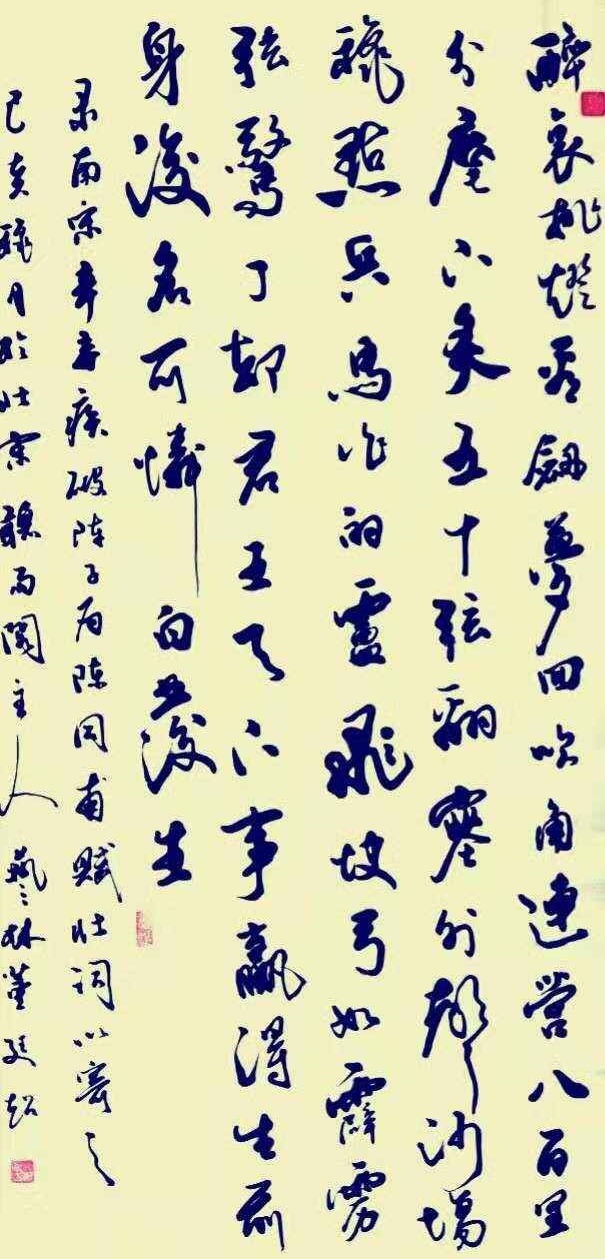 醉裏挑燈看劍夢回吹角連營八百里
分麾下炙五十弦翻塞外聲沙場
秋點兵馬作的盧飛快弓如霹靂
弦驚了却君王天下事贏得生前
身後名可憐白髮生
录南宋辛弃疾破阵子为陈同甫賦壮詞以寄之
己亥秋月於北京聽雨閣主人藝林董廷超